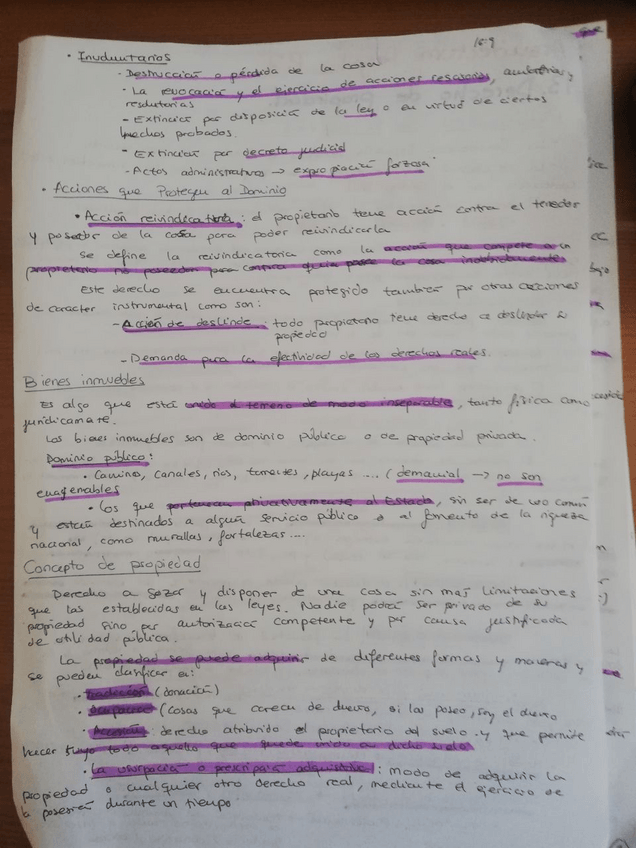 16-9
• Involuntarios
- Destrucción o pérdida de la cosa
- La revocación y el ejercicio de acciones resisorias, anulatorias y
resolutorias
- Extinción por disposición de la ley o en virtud de ciertos
hechos probados.
- Extinción por decreto judicial
- Actos administrativos → expropiación forzosa.
• Acciones que Protegen al Dominio
• Acción reivindicatoria: el propietario tiene acción contra el tenedor
y poseedor de la cosa para poder reivindicarla
Se define la reivindicatoria como la acción que compete a un
propietario no poseedor para contra quien posee la cosa indebidamente
Este derecho se encuentra protegido también por otras acciones
de caracter instrumental como son:
- Acción de deslinde: todo propietario tiene derecho a deslindar su
propiedad
- Demanda para la efectividad de los derechos reales.
Bienes inmuebles
Es algo que está unido al terreno de modo inseparable, tanto física como
jurídicamente.
Los bienes inmuebles son de dominio público o de propiedad privada.
Dominio público:
• Camino, canales, rios, torrentes, playas ... (demanial → no son
enagenables
• Los que pertenecen privativamente al Estado, sin ser de uso común
y están destinados a algún servicio público o al fomento de la riqueza
nacional, como murallas, fortalezas....
Concepto de propiedad
Derecho a gozar y disponer de una cosa sin mas limitaciones
que las establecidas en las leyes. Nadie podrá ser privado de su
propiedad sino por autorización competente y por causa justificada
de utilidad pública.
La propiedad se puede adquirir de diferentes formas y maneras y
se pueden clasificar en:
• Tradición (donación)
• Ocupación (cosas que carecen de dueño, si las poseo, soy el dueño
• Accesión: derecho atribuido el propietario del suelo y que permite
hacer suyo todo aquello que quede unido a dicho suelo
• La usurpación o prescripción adquisitiva: modo de adquirir la
propiedad o cualquier otro derecho real, mediante el ejercicio de
la posesión durante un tiempo.